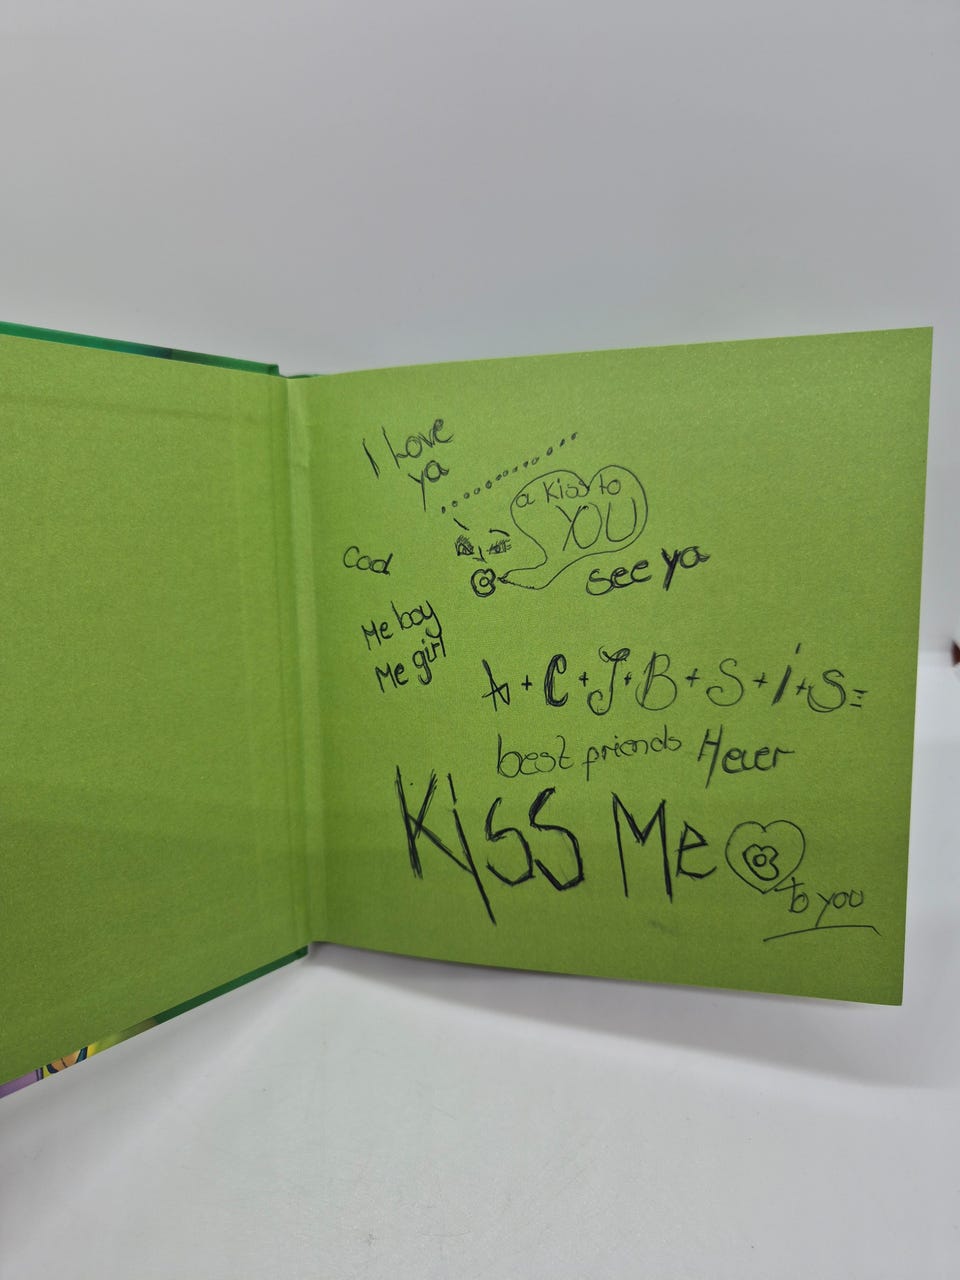 I Love
ya
a kiss to
YOU
see ya
Cool
Me boy
Me girl
A + C + J + B + S + i + S =
best friends Hever
Kiss Me
to you